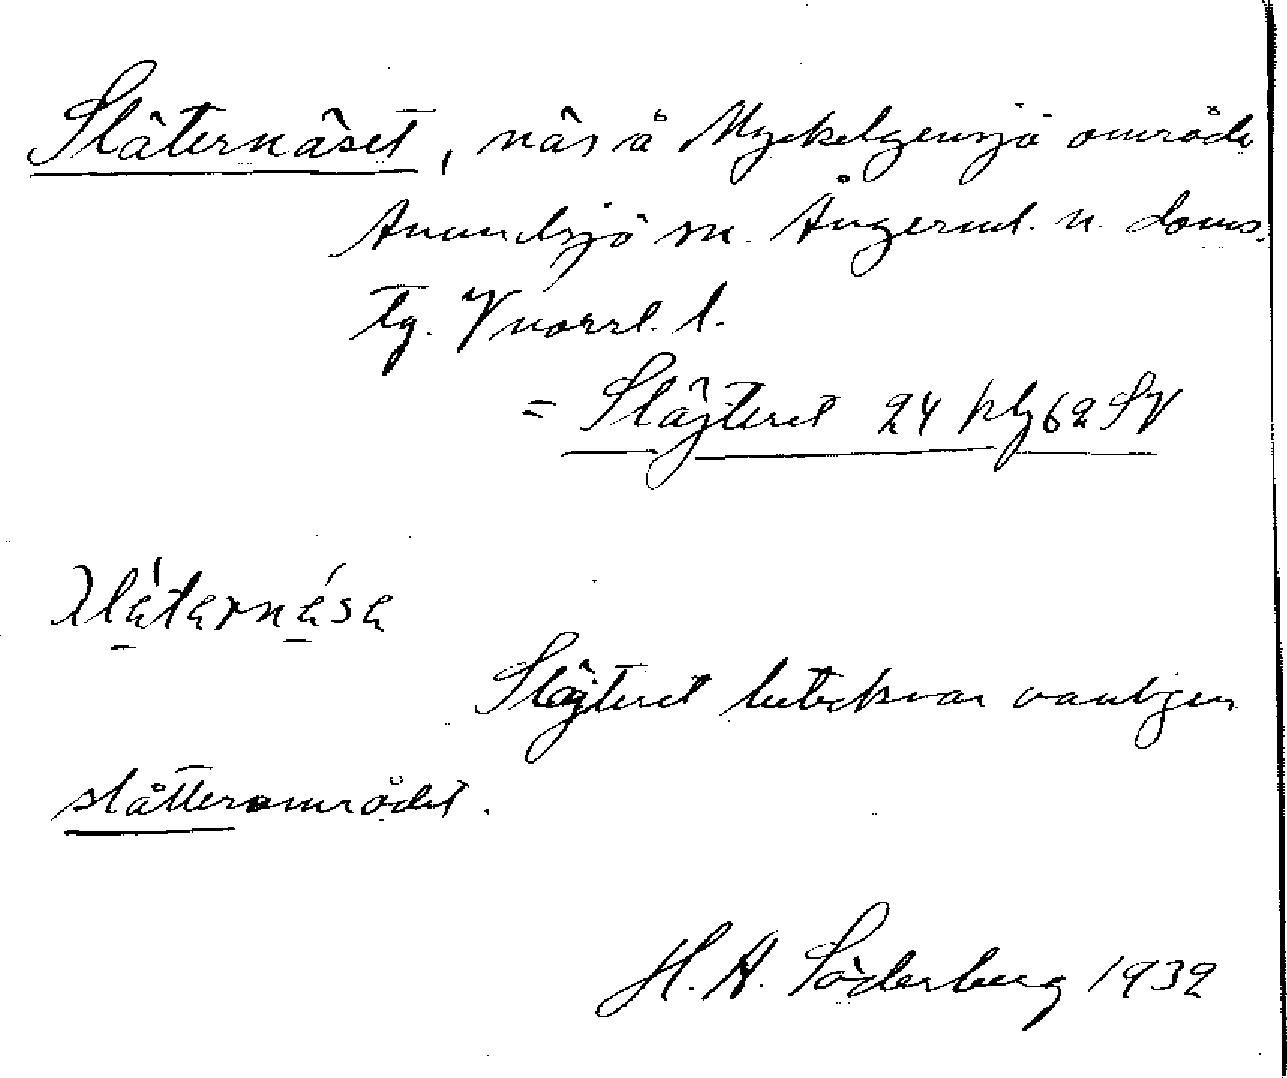 Slåternäset, näs å Myckelgensjö område
Anundsjö sn. Ångerml. n. doms.
tg. Vnorrl. l.
= Slåjteret 24 kbg 62 SV
Slåjteret betecknar vanligen
slåtterområdet.
H. A. Söderberg 1932